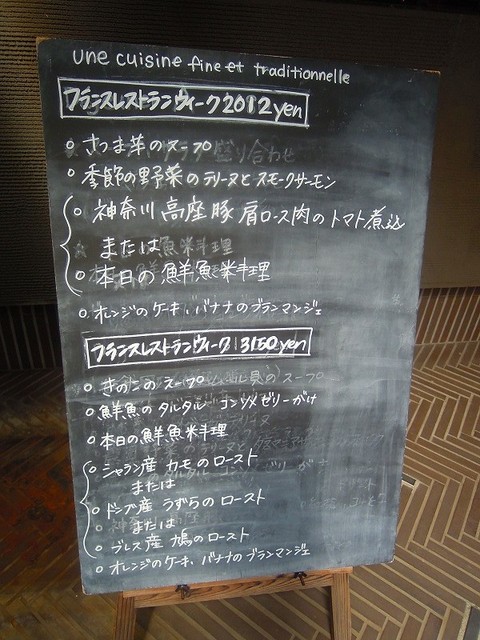 une cuisine fine et traditionnelle
フランスレストランウィーク2012yen
さつま芋のスープ
季節の野菜のテリーヌとスモークサーモン
神奈川高座豚肩ロース肉のトマト煮込
または
本日の鮮魚料理
オレンジのケーキ、バナナのブランマンジェ
フランスレストランウィーク3150yen
きのこのスープ
鮮魚のタルタル コンソメゼリーがけ
本日の鮮魚料理
シャラン産 カモのロースト
または
ドンブ産 うずらのロースト
または
ブレス産 鳩のロースト
オレンジのケーキ、バナナのブランマンジェ